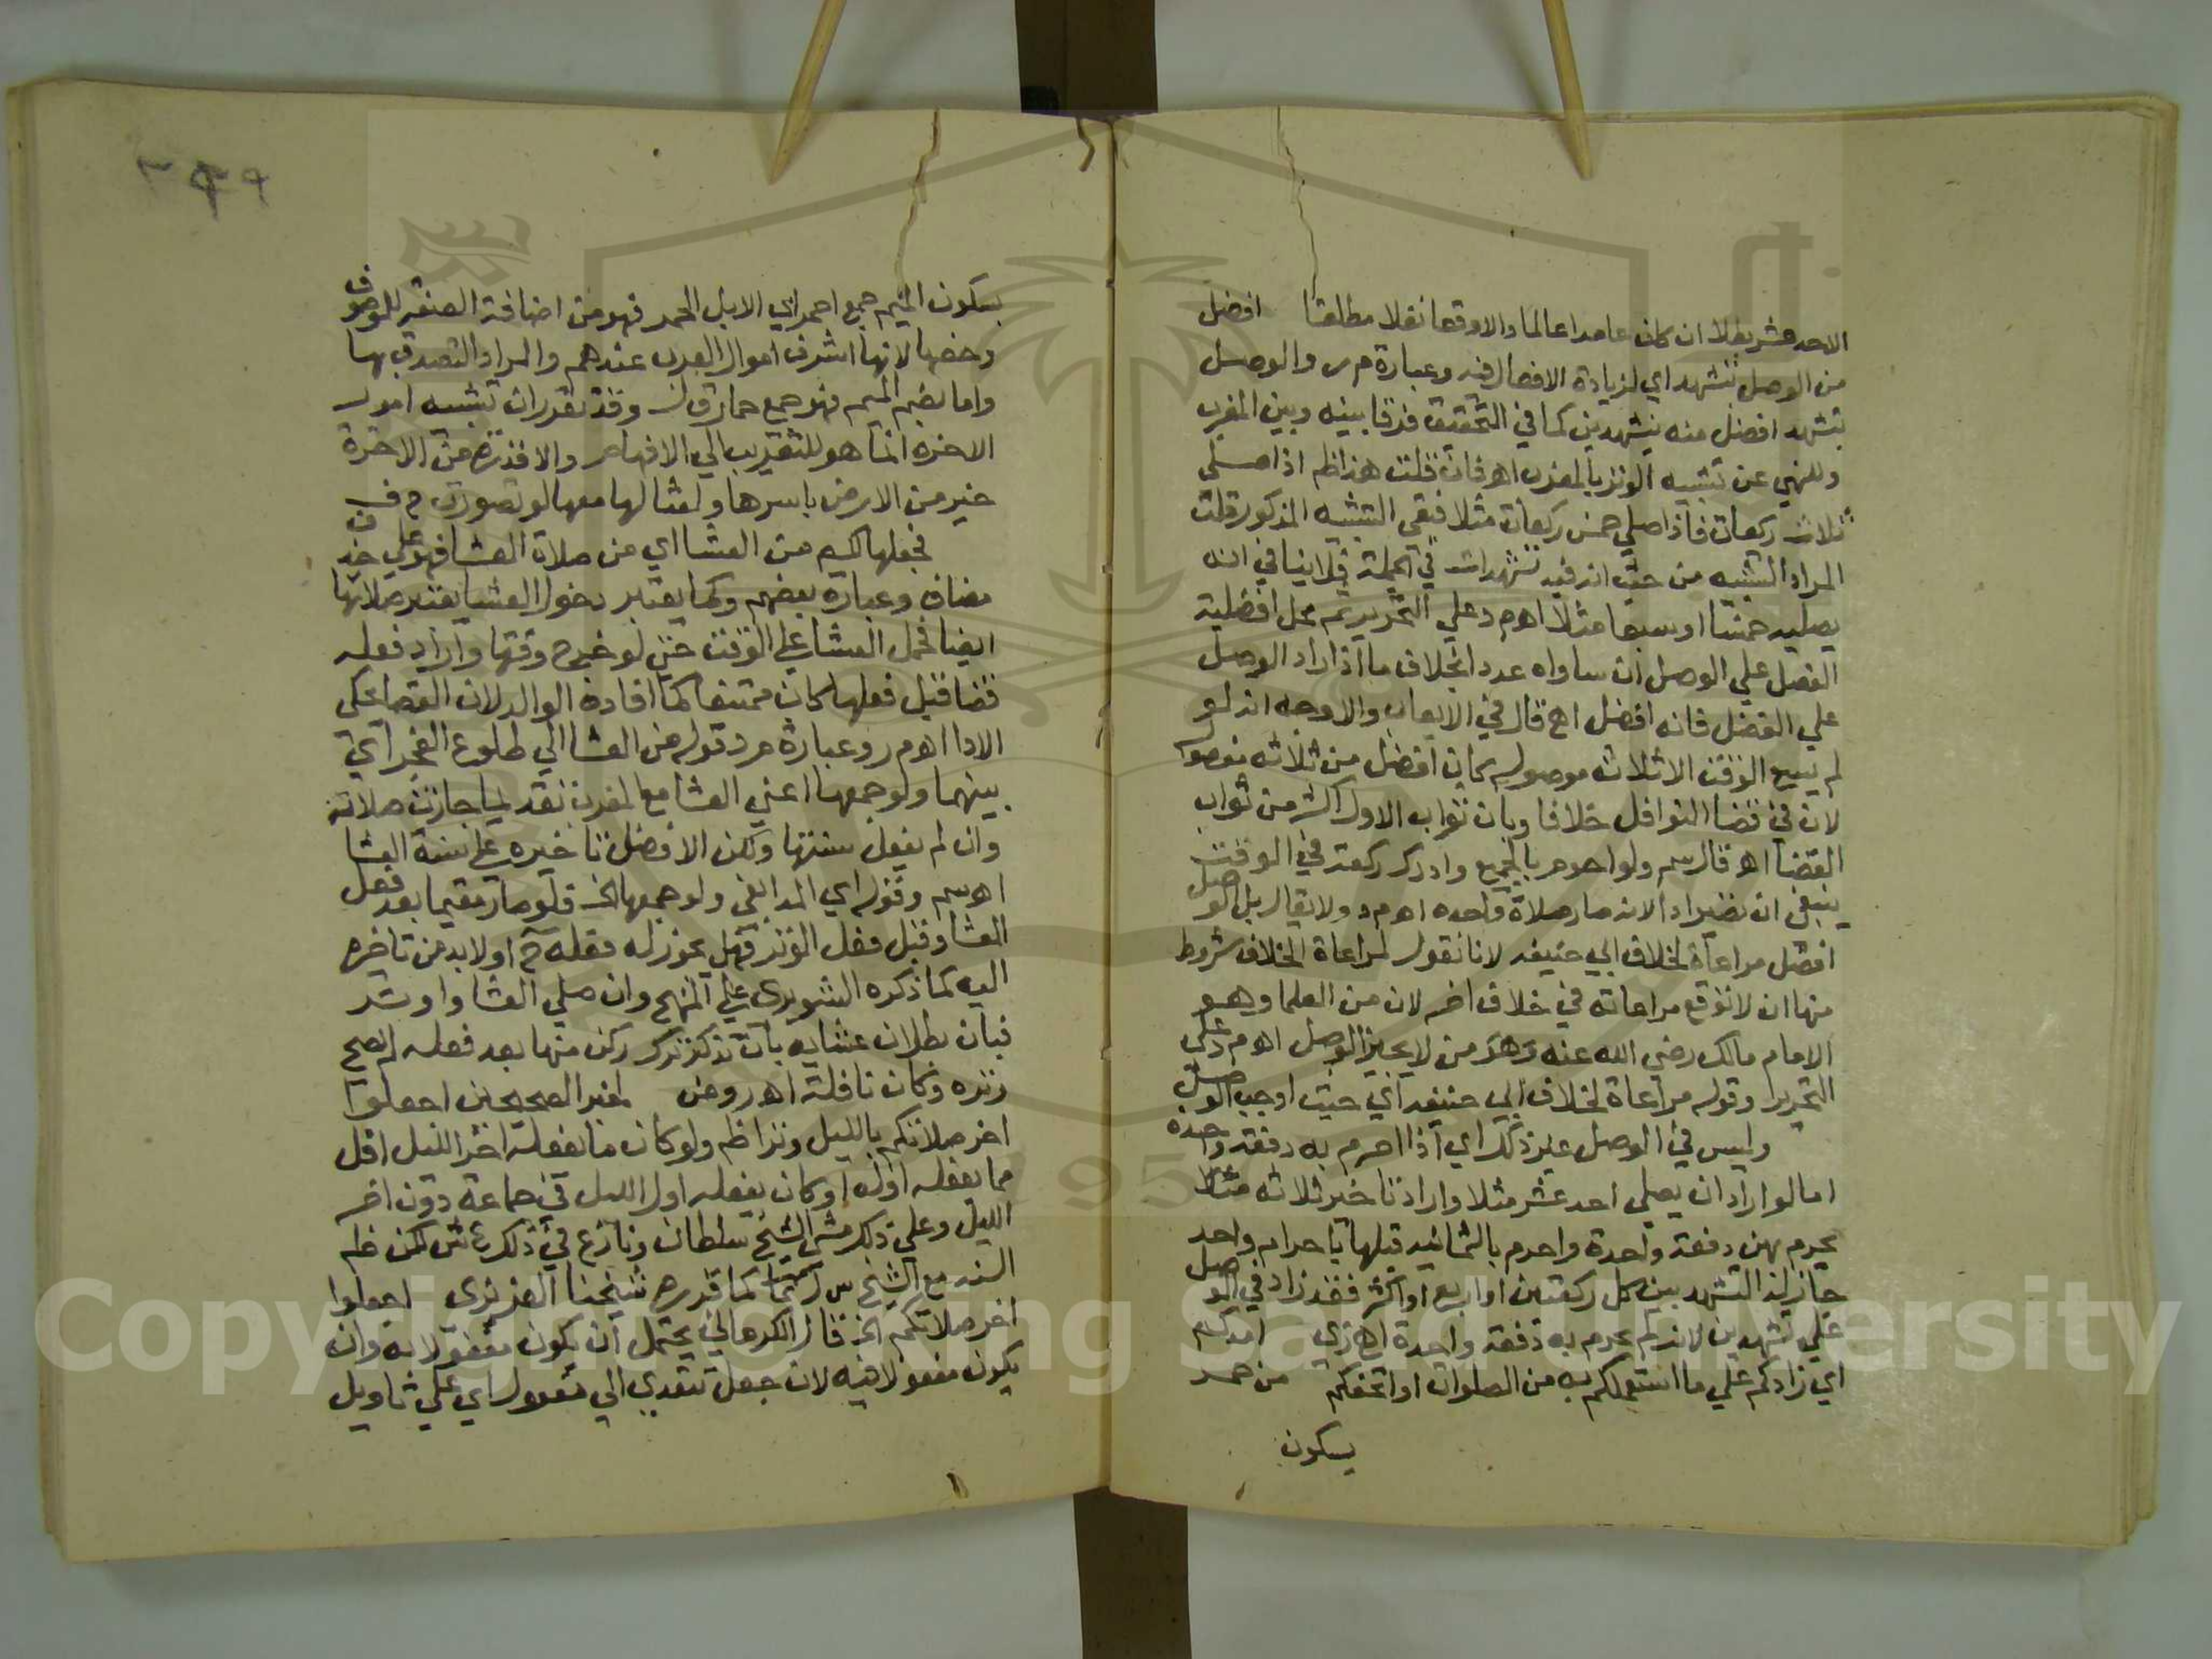 الاحد عشر بطلا ان كان عامدا عالما والا وقعا نفلا مطلقا افضل
من الوصل بتشهد اي لزيادة الافعال فيه وعبارة م ر والوصل
بتشهد افضل منه بتشهدين كما في التحقيق فرقا بينه وبين المغرب
وللنهي عن تشبيه الوتر بالمغرب اه فان قلت هذا ظاهر اذا صلي
ثلاث ركعات فاذا صلي خمس ركعات مثلا فبقي التشبيه المذكور قلت
المراد التشبيه من حيث ان فيه تشهدات في الجملة فلا ينافي انه
يصليه خمسا او سبعا مثلا اه م د علي التحرير ثم محل افضلية
الفصل علي الوصل ان ساواه عددا بخلاف ما اذا زاد الوصل
علي الفصل فانه افضل اه قال في الايعاب والاوجه انه لو
لم يسع الوقت الا ثلاث موصوله كان افضل من ثلاثه مفصوله
لان في قضا النوافل خلافا وبان ثواب الاول اكثر من ثواب
القضا اه قال سم ولو احرم بالجميع وادرك ركعة في الوقت
ينبغي ان تصير ادا لانه صار صلاة واحده اه م د ولا يقال بل الوصل
افضل مراعاة لخلاف ابي حنيفه لانا نقول لمراعاة الخلاف شروط
منها ان لا توقع مراعاته في خلاف اخر لان من العلما وهو
الامام مالك رضي الله عنه وهو من لا يجيز الوصل اه م د علي
التحرير وقوله مراعاة لخلاف ابي حنيفه اي حيث اوجب الوصل
وليس في الوصل غير ذلك اي اذا احرم به دفعة واحده
اما لو اراد ان يصلي احد عشر مثلا واراد تاخير ثلاثه مثلا
يحرم بهن دفعة واحدة واحرم بالثمانيه قبلها باحرام واحد
جاز له التشهد بين كل ركعتين او اربع او اكثر فقد زاد في الوصل
علي تشهدين لانه لم يحرم به دفعة واحدة اه زي امدكم
اي زادكم علي ما استعملكم به من الصلوات او اتحفكم من حمر
بسكون
٣٤٩
بسكون الميم جمع احمر اي الابل الحمر فهو من اضافة الصفة للموصوف
وخصها لانها اشرف اموال العرب عندهم والمراد التصدق بها
واما بضم الميم فهو جمع حمار ق ل وقد تقرر ان تشبيه امور
الاخره انما هو للتقريب الي الافهام والا فذرة من الاخرة
خير من الارض باسرها وامثالها معها لو تصورت ح ف
فجعلها لكم من العشا اي من صلاة العشا فهو علي حذف
مضاف وعبارة بعضهم وكما يعتبر دخول العشا يعتبر صلاتها
ايضا فحمل العشا علي الوقت حتي لو خرج وقتها واراد فعله
قضا قبل فعلها كان ممتنعا كما افاده الوالد لان القضا يحكي
الادا اه م ر وعبارة م د قوله من العشا الي طلوع الفجر اي
بينهما ولو جمعها اعني العشا مع المغرب تقديما جازت صلاته
وان لم يفعل سنتها ولكن الافضل تاخيره علي سنة العشا
اه سم وقوله اي المدابغي ولو جمعها الخ فلو صار مقيما بعد فعل
العشا وقبل فعل الوتر فهل يجوز له فعله ح او لا بد من تاخيره
اليه كما ذكره الشوبري علي المنهج وان صلي العشا واوتر
فبان بطلان عشايه بان تذكر ترك ركن منها بعد فعله لم يصح
وتره وكان نافلة اه روض لخبر الصحيحين اجعلوا
اخر صلاتكم بالليل وترا ظم ولو كان ما يفعله اخر الليل اقل
مما يفعله اوله او كان يفعله اول الليل في جماعة دون اخر
الليل وعلي ذلك مشي الشيخ سلطان ونازع في ذلك ع ش لكن ظم
السند مع الشيخ س ايضا كما قرره شيخنا العزيزي اجعلوا
اخر صلاتكم الخ قال الكرماني يحتمل ان يكون مفعولا به وان
يكون مفعولا فيه لان جعل تتعدي الي مفعول اي علي تاويل